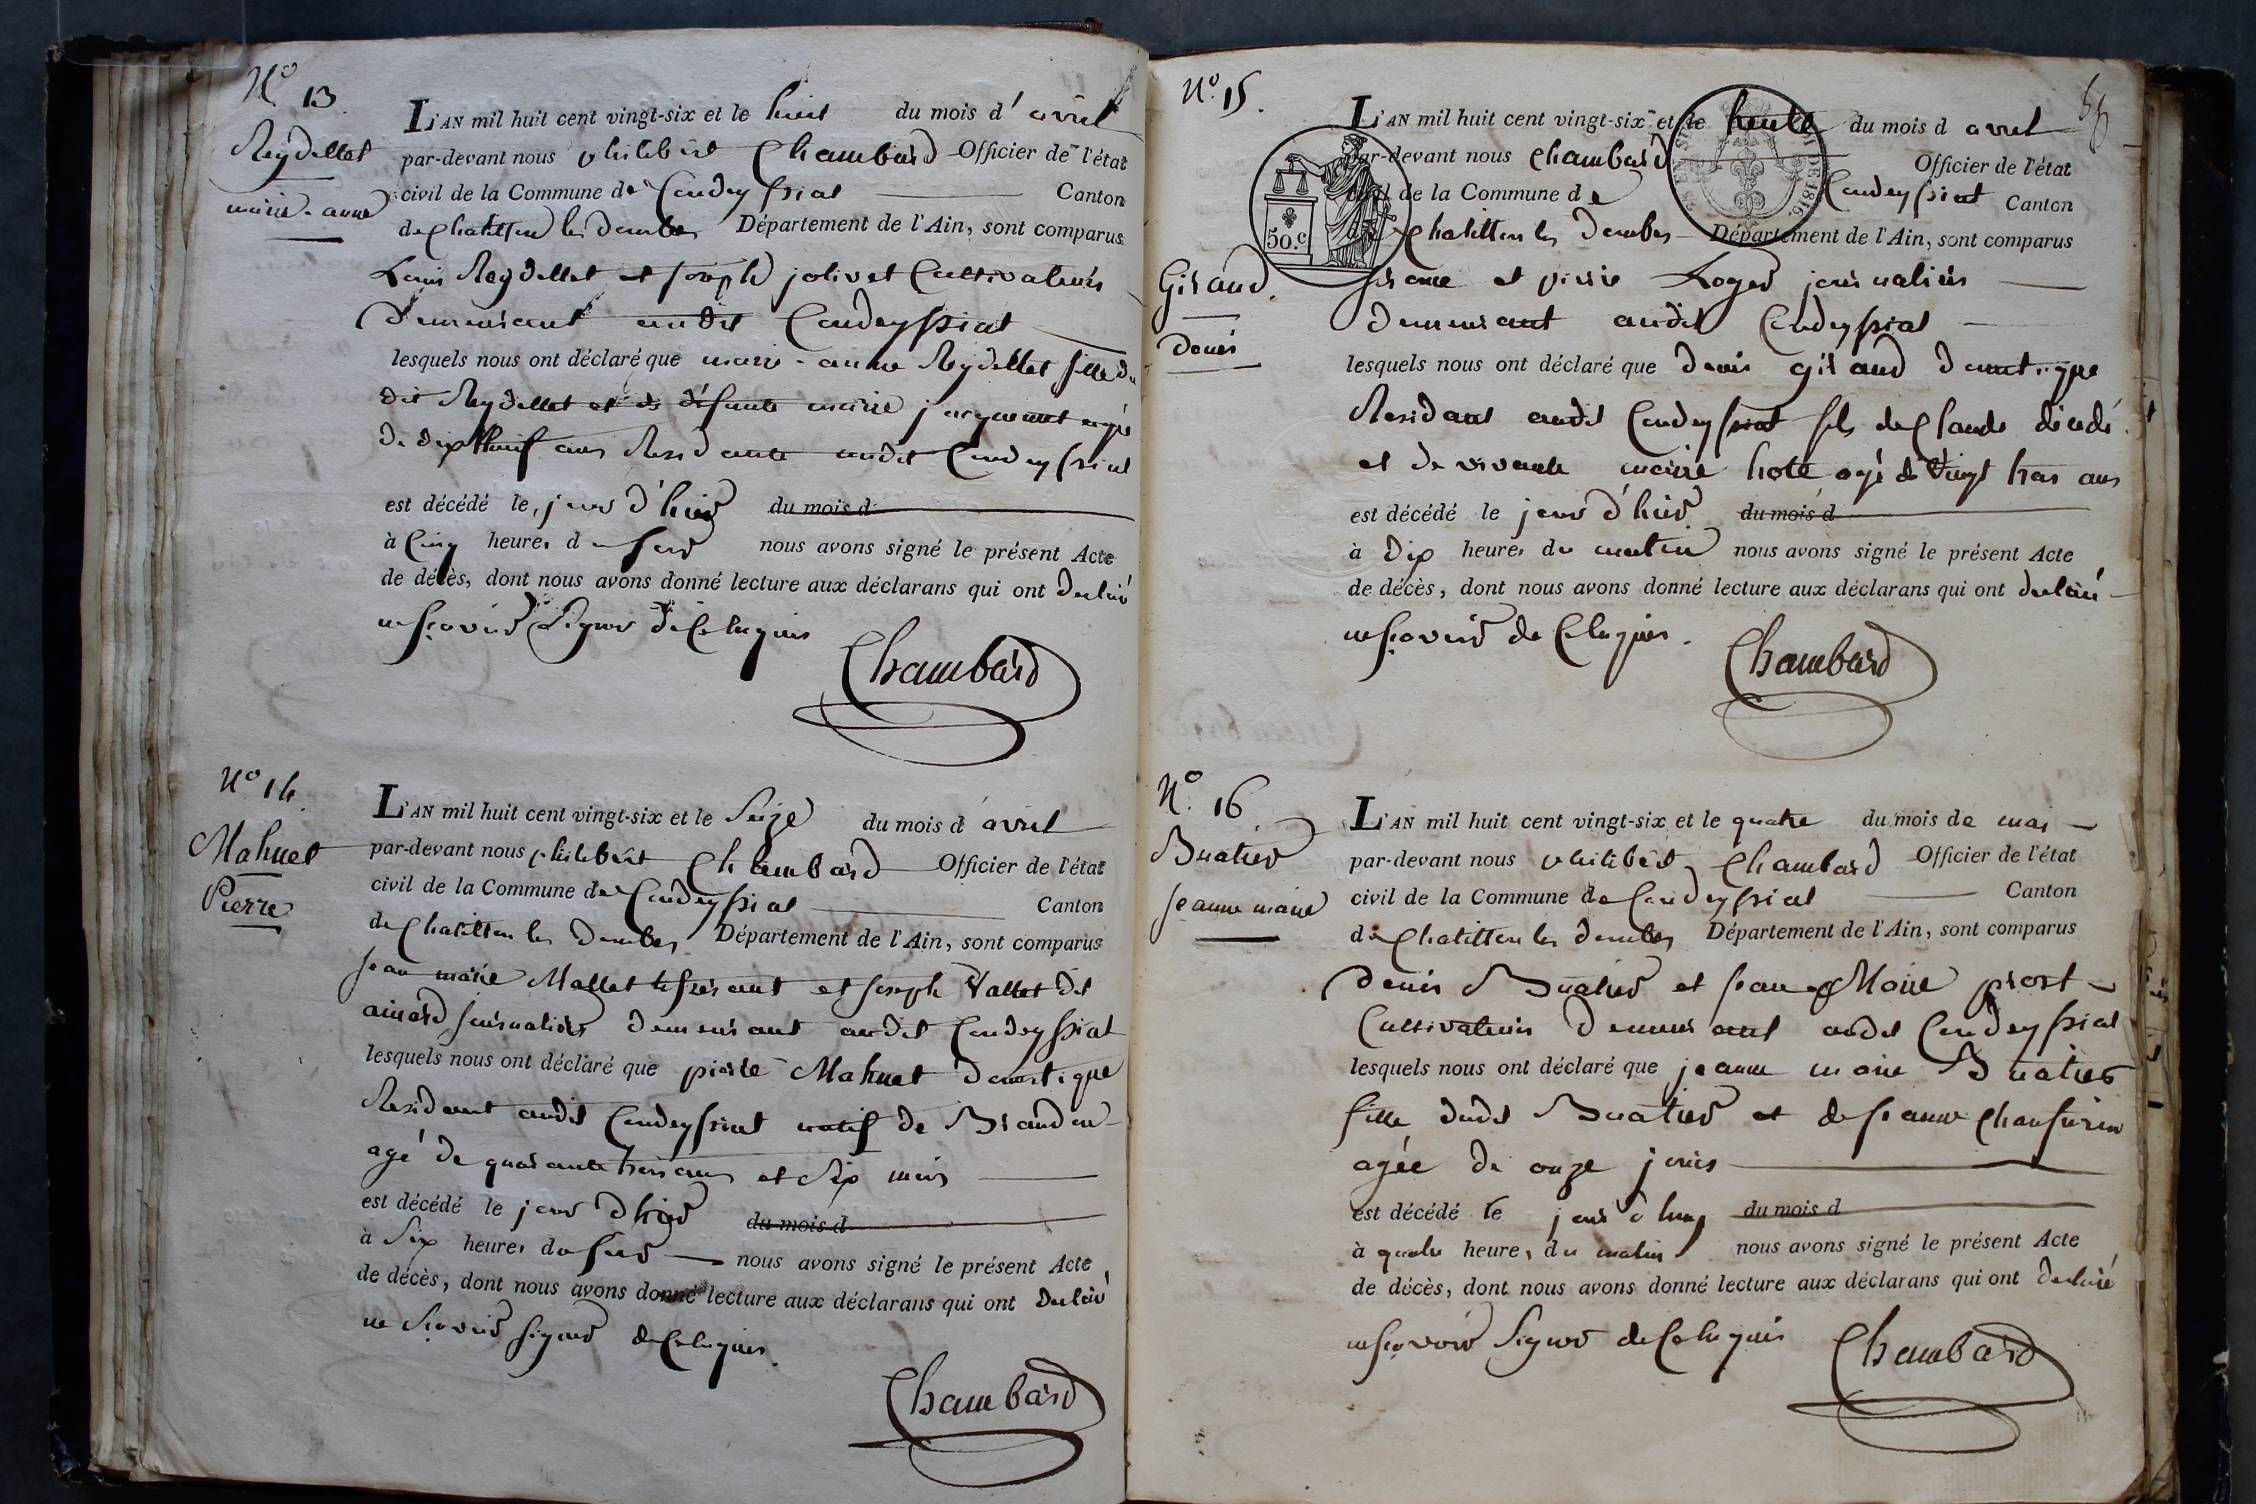 N° 13
Reydellet
marie-anne
L'AN mil huit cent vingt-six et le huit du mois d'avril
par-devant nous philibert Chambard Officier de l'état
civil de la Commune de Condeyssiat Canton
de Chatillon les dombes Département de l'Ain, sont comparus
Louis Reydellet et joseph jolivet Cultivateurs
Demeurant audit Condeyssiat
lesquels nous ont déclaré que marie-anne Reydellet fille du
dit Reydellet et de défunte marie jacquemet agée
de dix neuf ans Residante audit Condeyssiat
est décédé le jour d'hier du mois d
à Cinq heures du soir nous avons signé le présent Acte
de décès, dont nous avons donné lecture aux déclarans qui ont declaré
ne sçavoir Signer de Ce Enquis
Chambard
N° 14
Mahuet
Pierre
L'AN mil huit cent vingt-six et le Seize du mois d avril
par-devant nous philibert Chambard Officier de l'état
civil de la Commune de Condeyssiat Canton
de Chatillon les dombes Département de l'Ain, sont comparus
jean marie Mallet et joseph Vallet dit
journaliers demeurant audit Condeyssiat
lesquels nous ont déclaré que pierre Mahuet domestique
Resident audit Condeyssiat natif de
agé de quarante trois ans et Six mois
est décédé le jour d'hier du mois d
à Six heures du soir nous avons signé le présent Acte
de décès, dont nous avons donné lecture aux déclarans qui ont declaré
ne Sçavoir signer de Ce Enquis.
Chambard
N° 15.
Giraud.
Denis
50.C
L'AN mil huit cent vingt-six et le trente du mois d avril
par-devant nous Chambard Officier de l'état
civil de la Commune de Condeyssiat Canton
de Chatillon les Dombes Département de l'Ain, sont comparus
et pierre Roger journaliers
demeurant audit Condeyssiat
lesquels nous ont déclaré que denis giraud domestique
Residant audit Condeyssiat fils de Claude décédé
et de vivante marie agé de Vingt trois ans
est décédé le jour d'hier du mois d
à dix heures du matin nous avons signé le présent Acte
de décès, dont nous avons donné lecture aux déclarans qui ont declaré
ne sçavoir de Ce Enquis.
Chambard
N° 16
Buatier
jeanne marie
L'AN mil huit cent vingt-six et le quatre du mois de mai
par-devant nous philibert Chambard Officier de l'état
civil de la Commune de Condeyssiat Canton
de Chatillon les dombes Département de l'Ain, sont comparus
Denis Buatier et jean Marie
Cultivateurs Demeurant audit Condeyssiat
lesquels nous ont déclaré que jeanne marie Buatier
fille dudit Buatier et de jeanne
agée de onze jours
est décédé le jour d'huy du mois d
à quatre heures du matin nous avons signé le présent Acte
de décès, dont nous avons donné lecture aux déclarans qui ont declaré
ne sçavoir Signer de Ce Enquis
Chambard